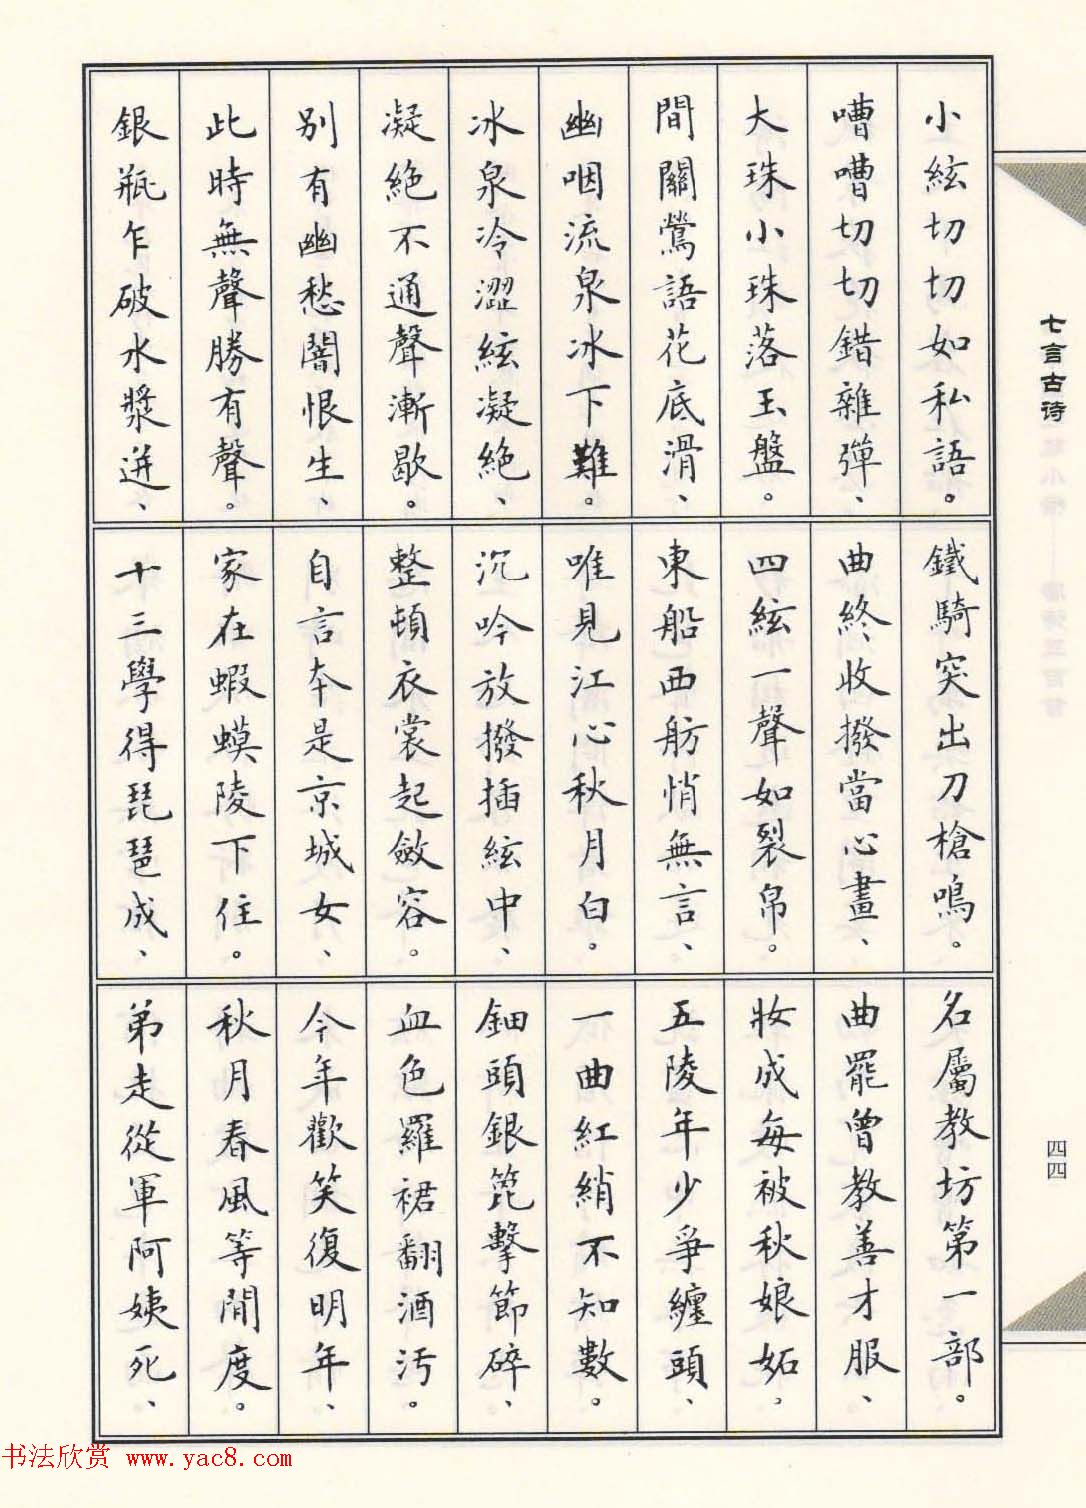 小絃切切如私語。
嘈嘈切切錯雜彈、
大珠小珠落玉盤。
間關鶯語花底滑、
幽咽流泉冰下難。
冰泉冷澀絃凝絕、
凝絕不通聲漸歇。
別有幽愁闇恨生、
此時無聲勝有聲。
銀瓶乍破水漿迸、
鐵騎突出刀槍鳴。
曲終收撥當心畫、
四絃一聲如裂帛。
東船西舫悄無言、
唯見江心秋月白。
沉吟放撥插絃中、
整頓衣裳起斂容。
自言本是京城女、
家在蝦蟆陵下住。
十三學得琵琶成、
名屬教坊第一部。
曲罷曾教善才服、
妝成每被秋娘妬。
五陵年少爭纏頭、
一曲紅綃不知數。
鈿頭銀篦擊節碎、
血色羅裙翻酒污。
今年歡笑復明年、
秋月春風等閒度。
弟走從軍阿姨死、
七言古诗
四四
书法欣赏 www.yac8.com